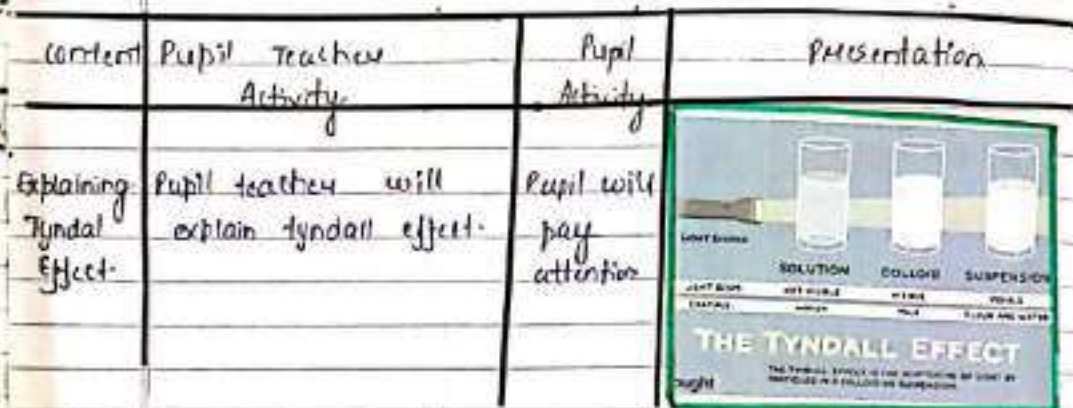 content Pupil Teacher Activity. Pupil Activity Presentation
Explaining Tyndal Effect.
Pupil teacher will
explain tyndall effect.
Pupil will
pay
attention
LIGHT SOURCE
SOLUTION COLLOID SUSPENSION
LIGHT BEAM NOT VISIBLE VISIBLE VISIBLE
MILK FLOUR AND WATER
THE TYNDALL EFFECT
THE TYNDALL EFFECT IS THE SCATTERING OF LIGHT BY
PARTICLES IN A COLLOID OR SUSPENSION
ought